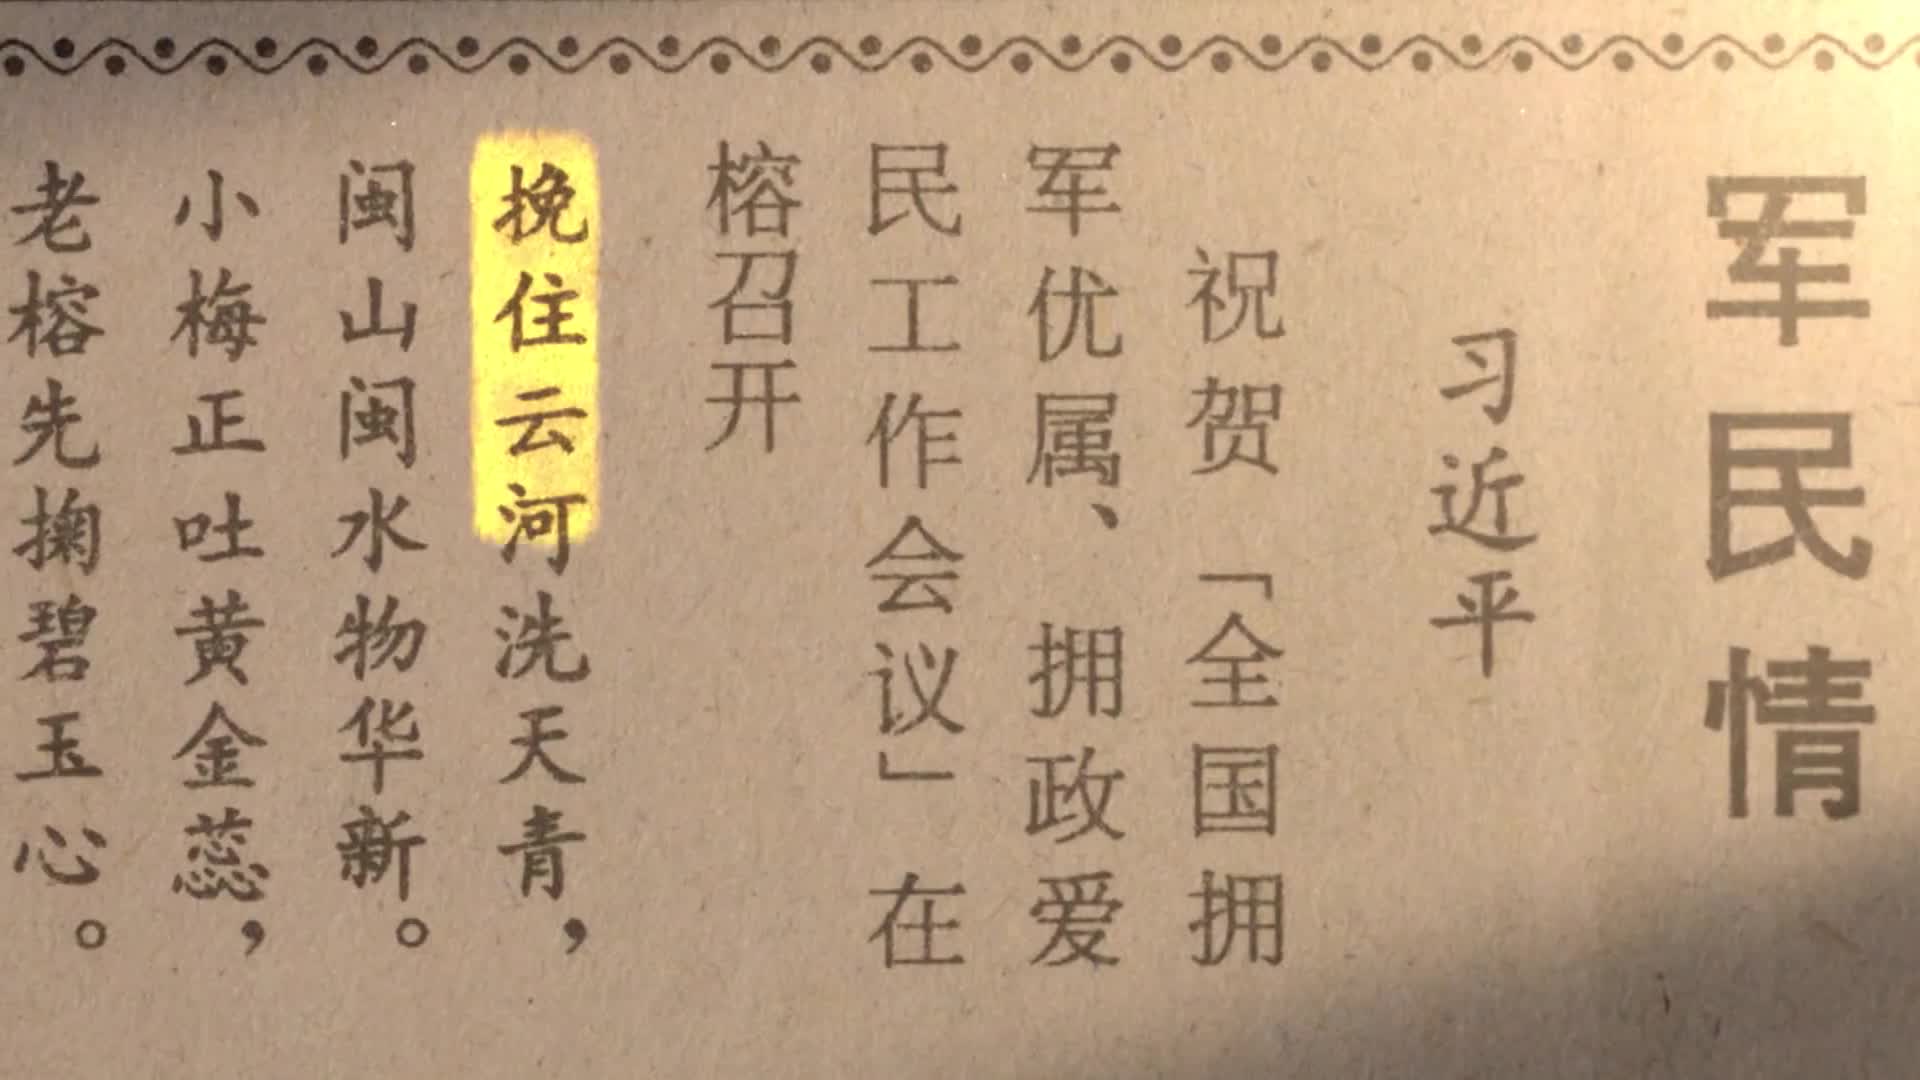 军民情
习近平
祝贺「全国拥
军优属、拥政爱
民工作会议」在
榕召开
挽住云河洗天青，
闽山闽水物华新。
小梅正吐黄金蕊，
老榕先掬碧玉心。